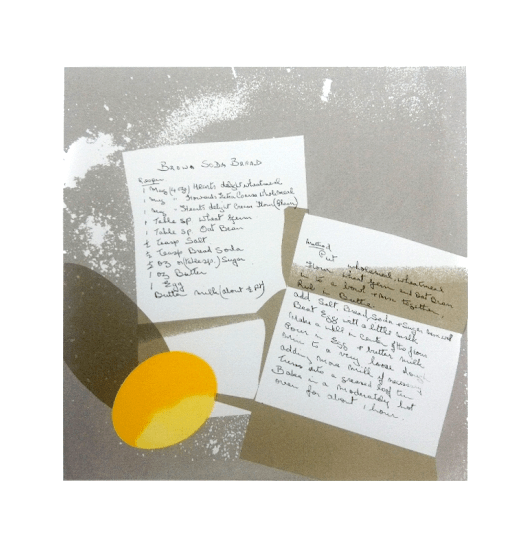 BROWN SODA BREAD
Recipe
1 mug (4 oz) Hewits delight wheatmeal
1 mug " Howards Extra Coarse wholemeal
1 mug " Hewits delight Cream Flour (Plain)
1 Table sp. Wheat Germ
1 Table sp. Oat Bran
½ teasp Salt
Teasp Bread Soda
½ oz or (Table sp.) Sugar
1 oz Butter
1 Egg
Butter milk (about ½ pt)
Method
Put wholemeal, wheatmeal
flour wheat germ and oat Bran
in to a bowl & mix together.
Rub in Butter.
add Salt Bread Soda & Sugar
Beat Egg with a little milk
Make a well in Centre of the flour
Pour in Egg & butter milk
turn to a very loose dough
adding more milk if necessary
Turn into a greased loaf tin
Bake in a moderately hot
oven for about 1 hour.